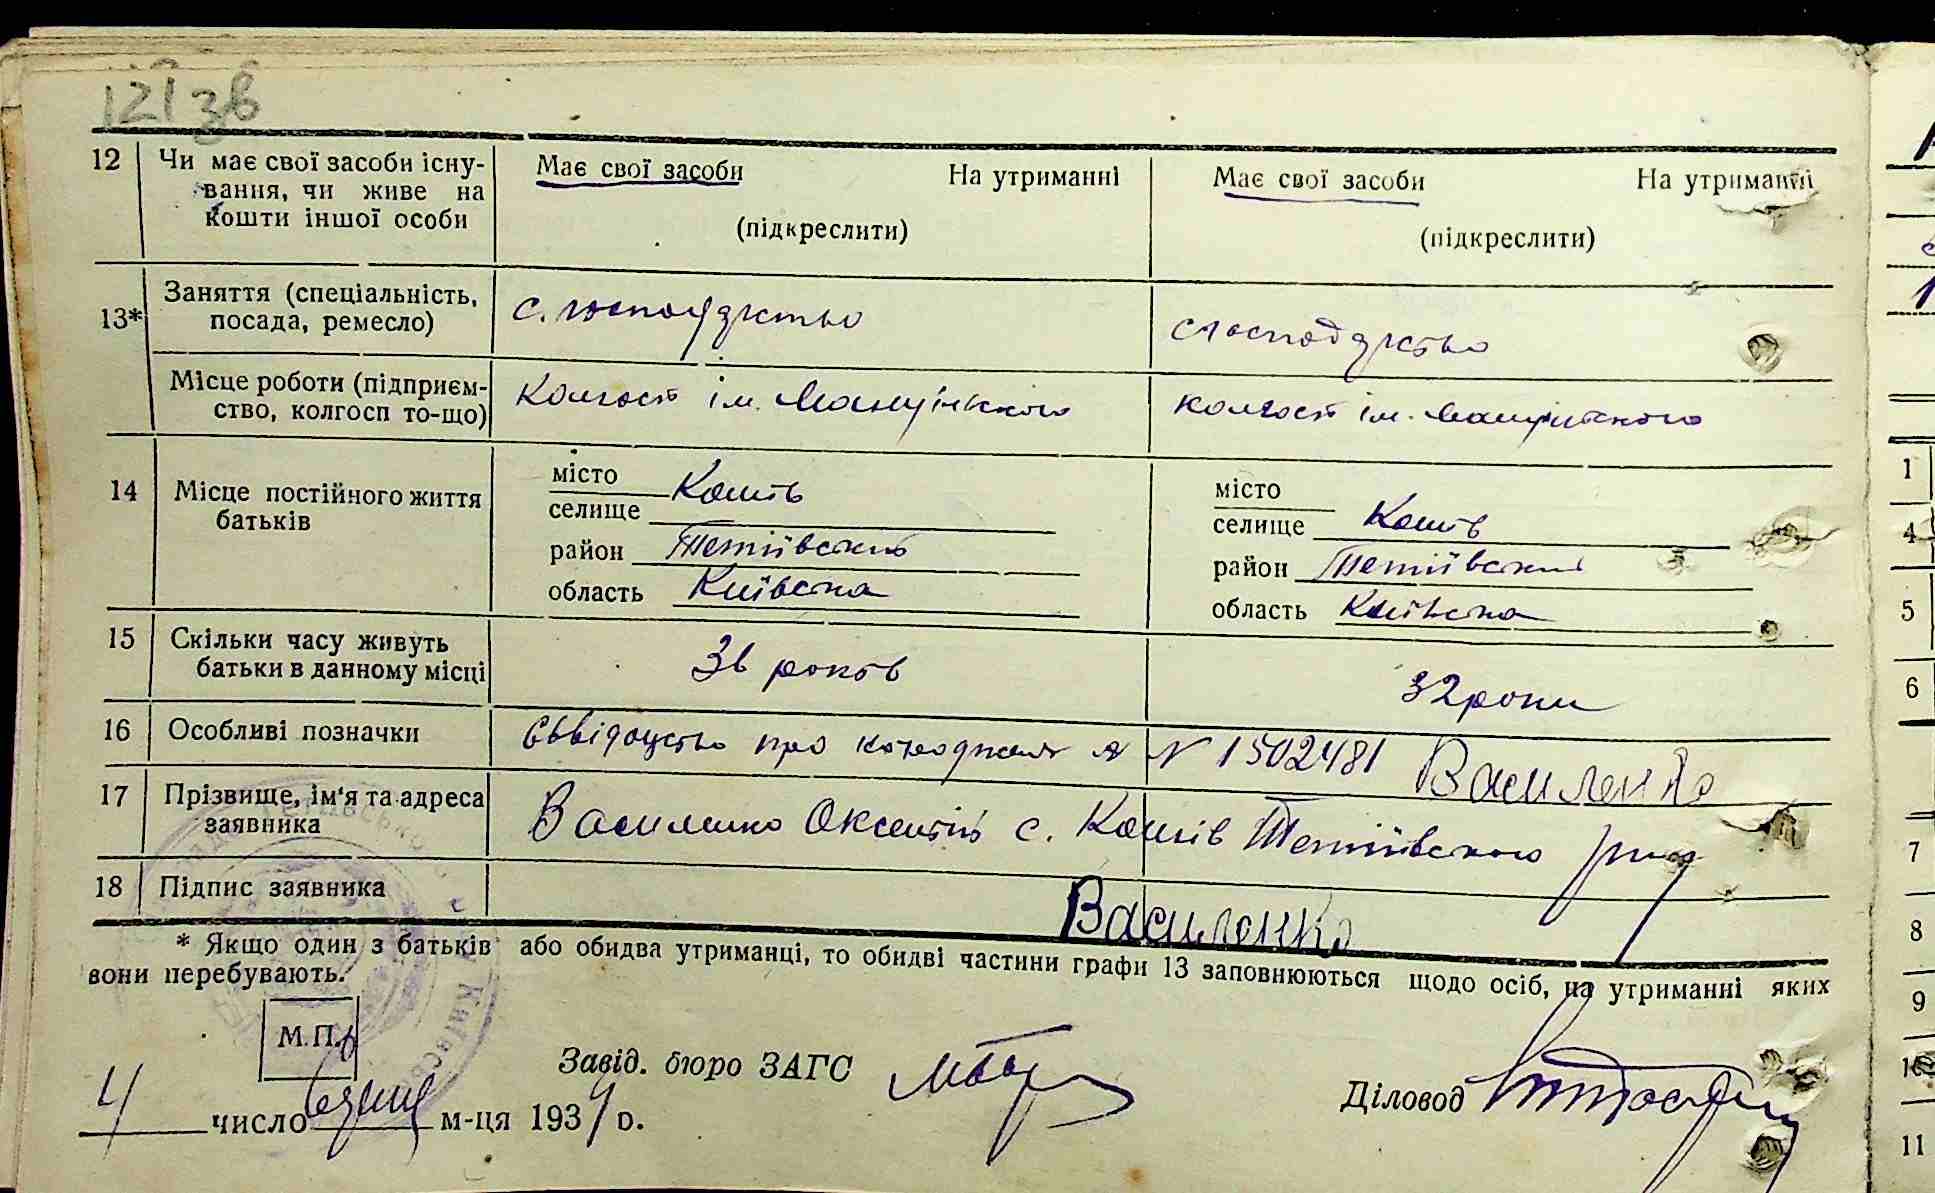 121 зв
12 Чи має свої засоби існу-
вання, чи живе на
кошти іншої особи
Має свої засоби На утриманні
(підкреслити)
Має свої засоби На утриманні
(підкреслити)
13* Заняття (спеціальність,
посада, ремесло)
с. господарство
с господарство
Місце роботи (підприєм-
ство, колгосп то-що)
Колгосп ім. Мануїльского
колгосп ім. Мануїльского
14 Місце постійного життя
батьків
місто
селище Кошів
район Тетіївський
область Київська
місто
селище Кошів
район Тетіївський
область Київська
15 Скільки часу живуть
батьки в данному місці
36 років
32 роки
16 Особливі позначки
про N 1502481 Василенко
17 Прізвище, ім'я та адреса
заявника
Василенко Оксентій с. Кошів Тетіївського
18 Підпис заявника
Василенко
* Якщо один з батьків або обидва утриманці, то обидві частини графи 13 заповнюються щодо осіб, на утриманні яких
вони перебувають.
М.П.
Завід. бюро ЗАГС
Діловод
4 число м-ця 1939 р.
1
4
5
6
7
8
9
10
11